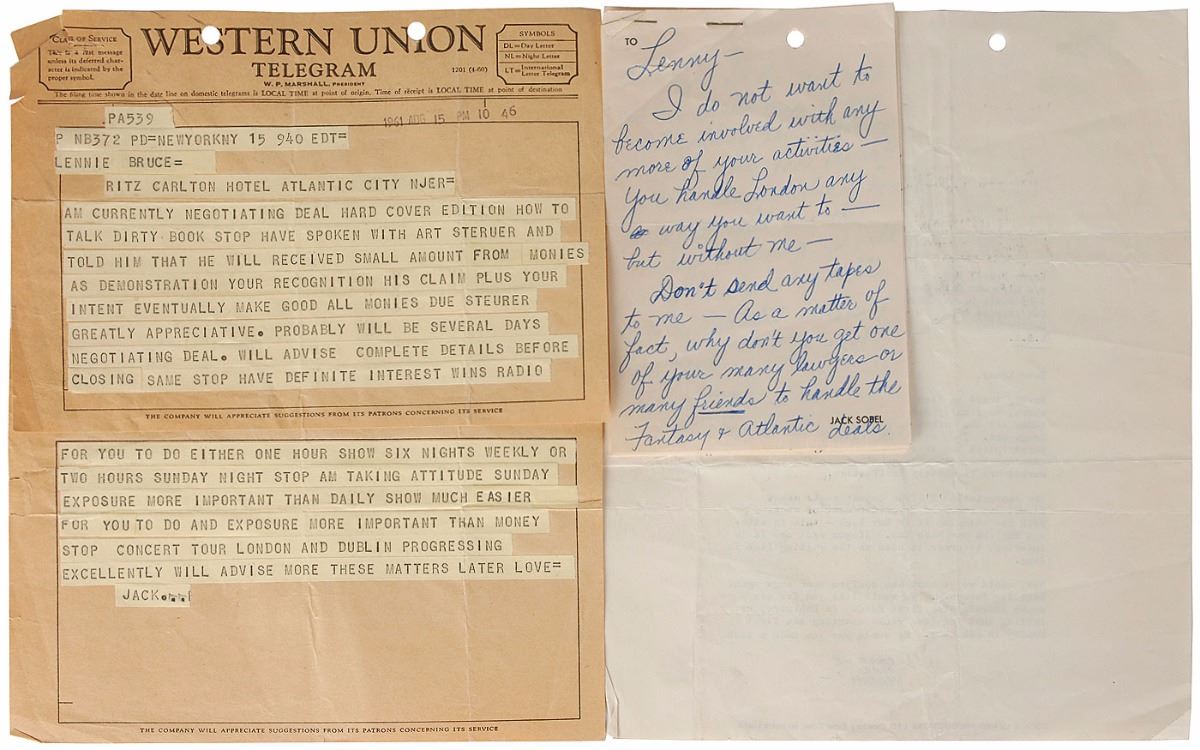 CLASS OF SERVICE
This is a fast message
unless its deferred char-
acter is indicated by the
proper symbol.
WESTERN UNION
TELEGRAM
W. P. MARSHALL, PRESIDENT
1201 (4-60)
SYMBOLS
DL=Day Letter
NL=Night Letter
LT=International Letter Telegram
The filing time shown in the date line on domestic telegrams is LOCAL TIME at point of origin. Time of receipt is LOCAL TIME at point of destination
.PA539
1961 AUG 15 PM 10 46
P NB372 PD=NEWYORKNY 15 940 EDT=
LENNIE BRUCE=
RITZ CARLTON HOTEL ATLANTIC CITY NJER=
AM CURRENTLY NEGOTIATING DEAL HARD COVER EDITION HOW TO
TALK DIRTY BOOK STOP HAVE SPOKEN WITH ART STERUER AND
TOLD HIM THAT HE WILL RECEIVED SMALL AMOUNT FROM MONIES
AS DEMONSTRATION YOUR RECOGNITION HIS CLAIM PLUS YOUR
INTENT EVENTUALLY MAKE GOOD ALL MONIES DUE STEURER
GREATLY APPRECIATIVE. PROBABLY WILL BE SEVERAL DAYS
NEGOTIATING DEAL. WILL ADVISE COMPLETE DETAILS BEFORE
CLOSING SAME STOP HAVE DEFINITE INTEREST WINS RADIO
THE COMPANY WILL APPRECIATE SUGGESTIONS FROM ITS PATRONS CONCERNING ITS SERVICE
FOR YOU TO DO EITHER ONE HOUR SHOW SIX NIGHTS WEEKLY OR
TWO HOURS SUNDAY NIGHT STOP AM TAKING ATTITUDE SUNDAY
EXPOSURE MORE IMPORTANT THAN DAILY SHOW MUCH EASIER
FOR YOU TO DO AND EXPOSURE MORE IMPORTANT THAN MONEY
STOP CONCERT TOUR LONDON AND DUBLIN PROGRESSING
EXCELLENTLY WILL ADVISE MORE THESE MATTERS LATER LOVE=
JACK.
THE COMPANY WILL APPRECIATE SUGGESTIONS FROM ITS PATRONS CONCERNING ITS SERVICE
TO
Lenny—
I do not want to
become involved with any
more of your activities —
You handle London any
way you want to —
but without me —
Don't send any tapes
to me — As a matter of
fact, why don't you get one
of your many lawyers or
many friends to handle the
Fantasy & Atlantic deals.
JACK SOBEL